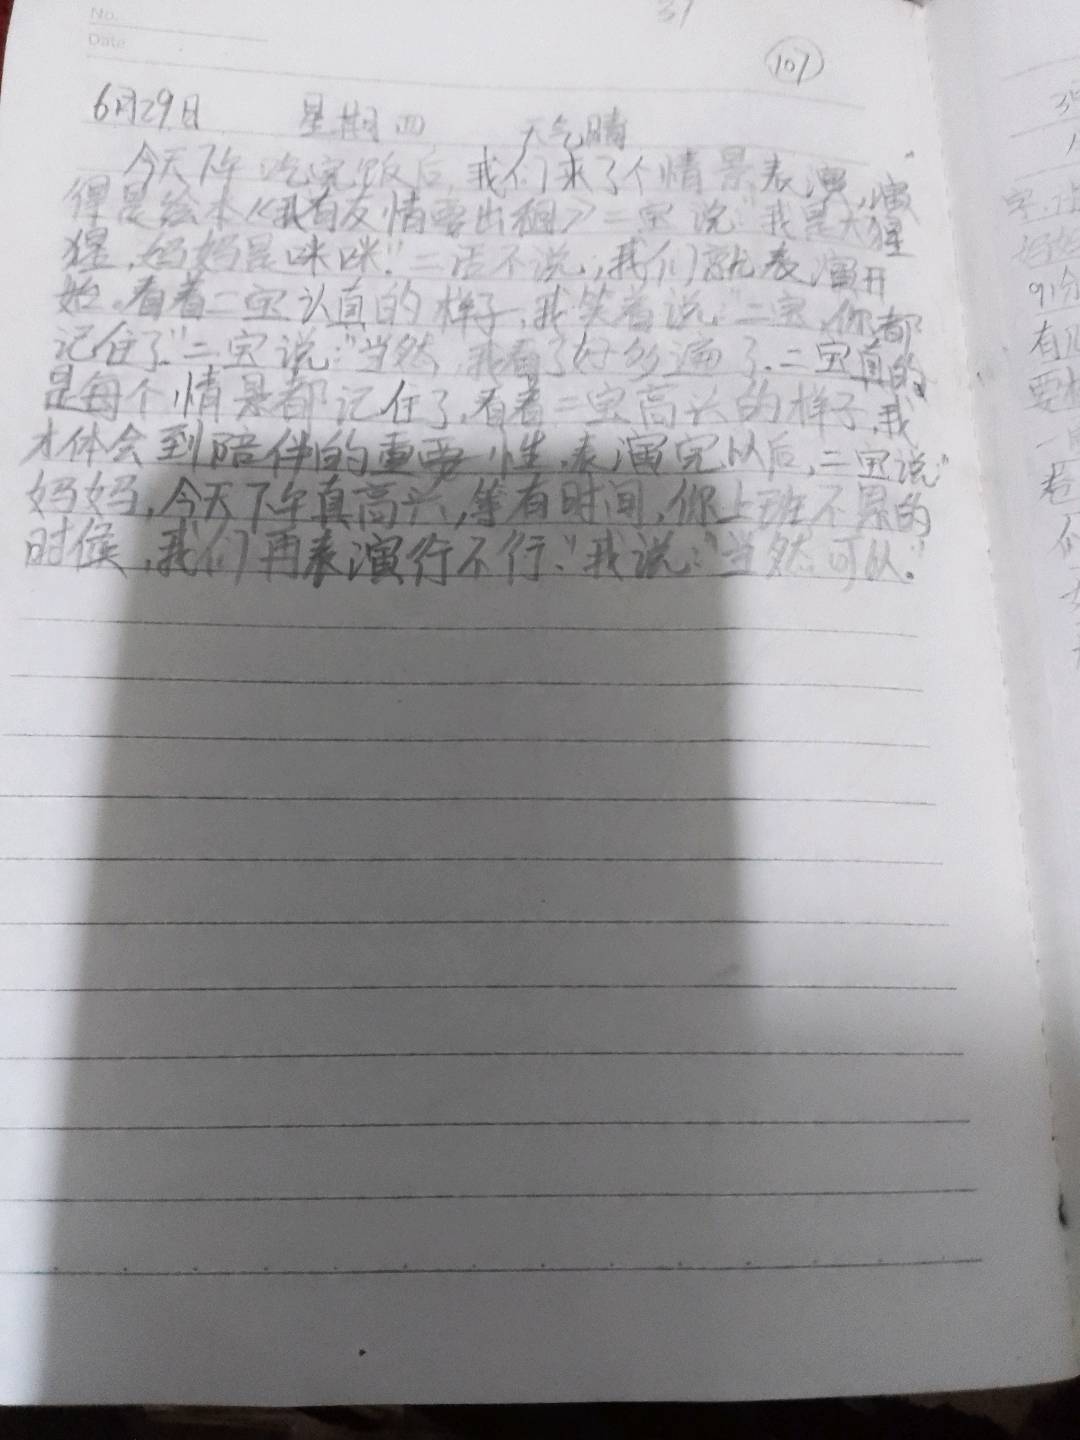 No.
Date
31
107
6月29日 星期四 天气晴
今天下午吃完饭后,我们来了个情景表演,演
得是绘本《我有友情要出租》二宝说:"我是大猩
猩,妈妈是咪咪."二话不说,我们就表演开
始.看着二宝认真的样子,我笑着说:"二宝,你都
记住了"二宝说:"当然,我看了好多遍了.二宝真的
是每个情景都记住了,看着二宝高兴的样子,我
才体会到陪伴的重要性.表演完以后,二宝说:"
妈妈,今天下午真高兴,等有时间,你上班不累的
时候,我们再表演行不行."我说:"当然可以."